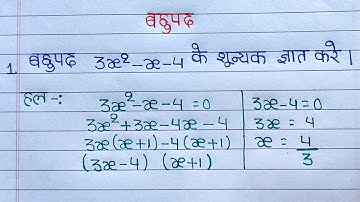 बहुपद
1. बहुपद 3x²-x-4 के शून्यक ज्ञात करे।
हल -:
3x²-x-4=0
3x²+3x-4x-4
3x(x+1)-4(x+1)
(3x-4) (x+1)
3x-4=0
3x = 4
x = 4/3